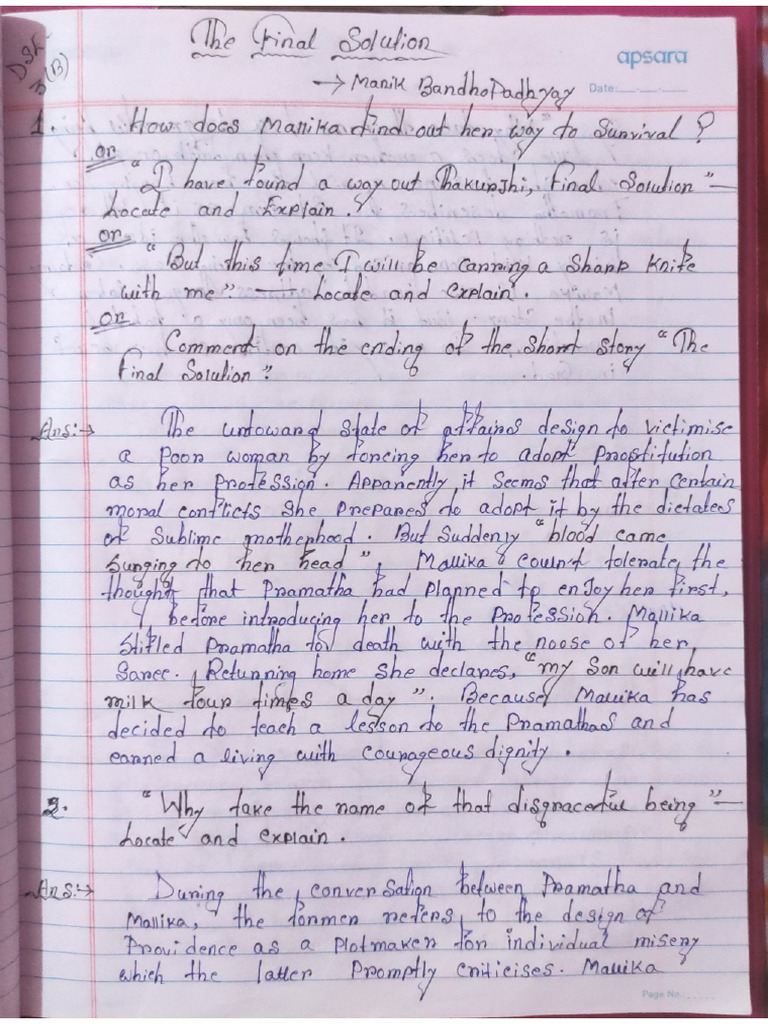 DSE-
3(B)
The Final Solution
apsara
→ Manik Bandhopadhyay
Date:
1. How does Mallika find out her way to Survival?
or
"I have found a way out Thakurjhi, Final Solution" —
Locate and Explain.
or
"But this time I will be carring a Sharp Knife
with me". — Locate and explain.
or
Comment on the ending of the short story "The
Final Solution".
Ans:→ The untoward state of affairs design to victimise
a poor woman by forcing her to adopt Prostitution
as her Profession. Apparently it seems that after certain
moral conflicts she prepares to adopt it by the dictates
of Sublime motherhood. But Suddenly "blood came
surging to her head", Mallika coun't tolerate the
thought that Pramatha had planned to enjoy her first,
before introducing her to the Profession. Mallika
stifled Pramatha to death with the noose of her
Saree. Returning home she declares, "my Son will have
milk four times a day". Because Mallika has
decided to teach a lesson to the Pramathas and
earned a living with courageous dignity.
2. "Why take the name of that disgraceful being" —
Locate and explain.
Ans:→ During the conversation between Pramatha and
Mallika, the former refers to the design of
Providence as a plotmaker for individual misery
which the latter Promptly criticises. Mallika
Page No.